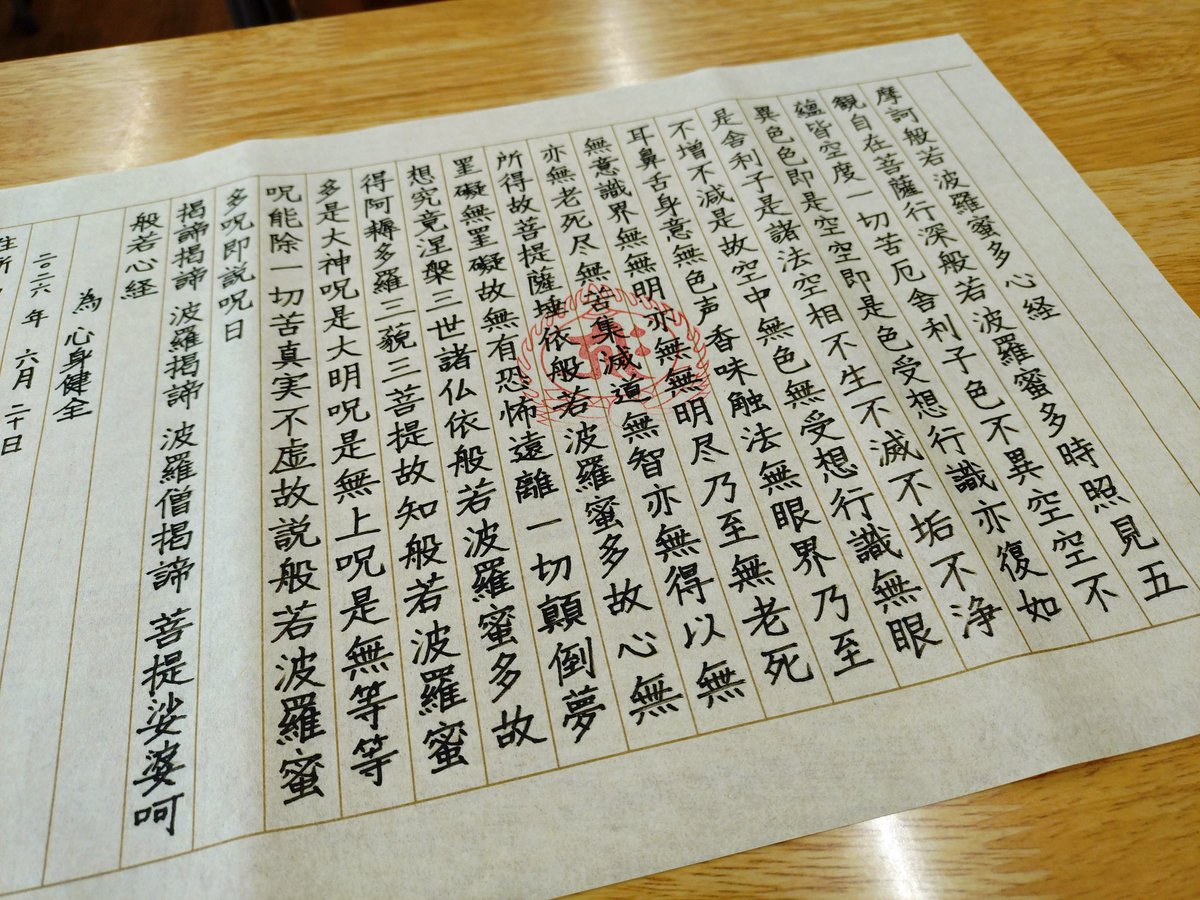 摩訶般若波羅蜜多心経
観自在菩薩行深般若波羅蜜多時照見五
蘊皆空度一切苦厄舎利子色不異空空不
異色色即是空空即是色受想行識亦復如
是舎利子是諸法空相不生不滅不垢不浄
不増不減是故空中無色無受想行識無眼
耳鼻舌身意無色声香味触法無眼界乃至
無意識界無無明亦無無明尽乃至無老死
亦無老死尽無苦集滅道無智亦無得以無
所得故菩提薩埵依般若波羅蜜多故心無
罣礙無罣礙故無有恐怖遠離一切顛倒夢
想究竟涅槃三世諸仏依般若波羅蜜多故
得阿耨多羅三藐三菩提故知般若波羅蜜
多是大神呪是大明呪是無上呪是無等等
呪能除一切苦真実不虚故説般若波羅蜜
多呪即説呪曰
掲諦掲諦 波羅掲諦 波羅僧掲諦 菩提娑婆呵
般若心経
為 心身健全
二〇二六年 六月二十日
住所